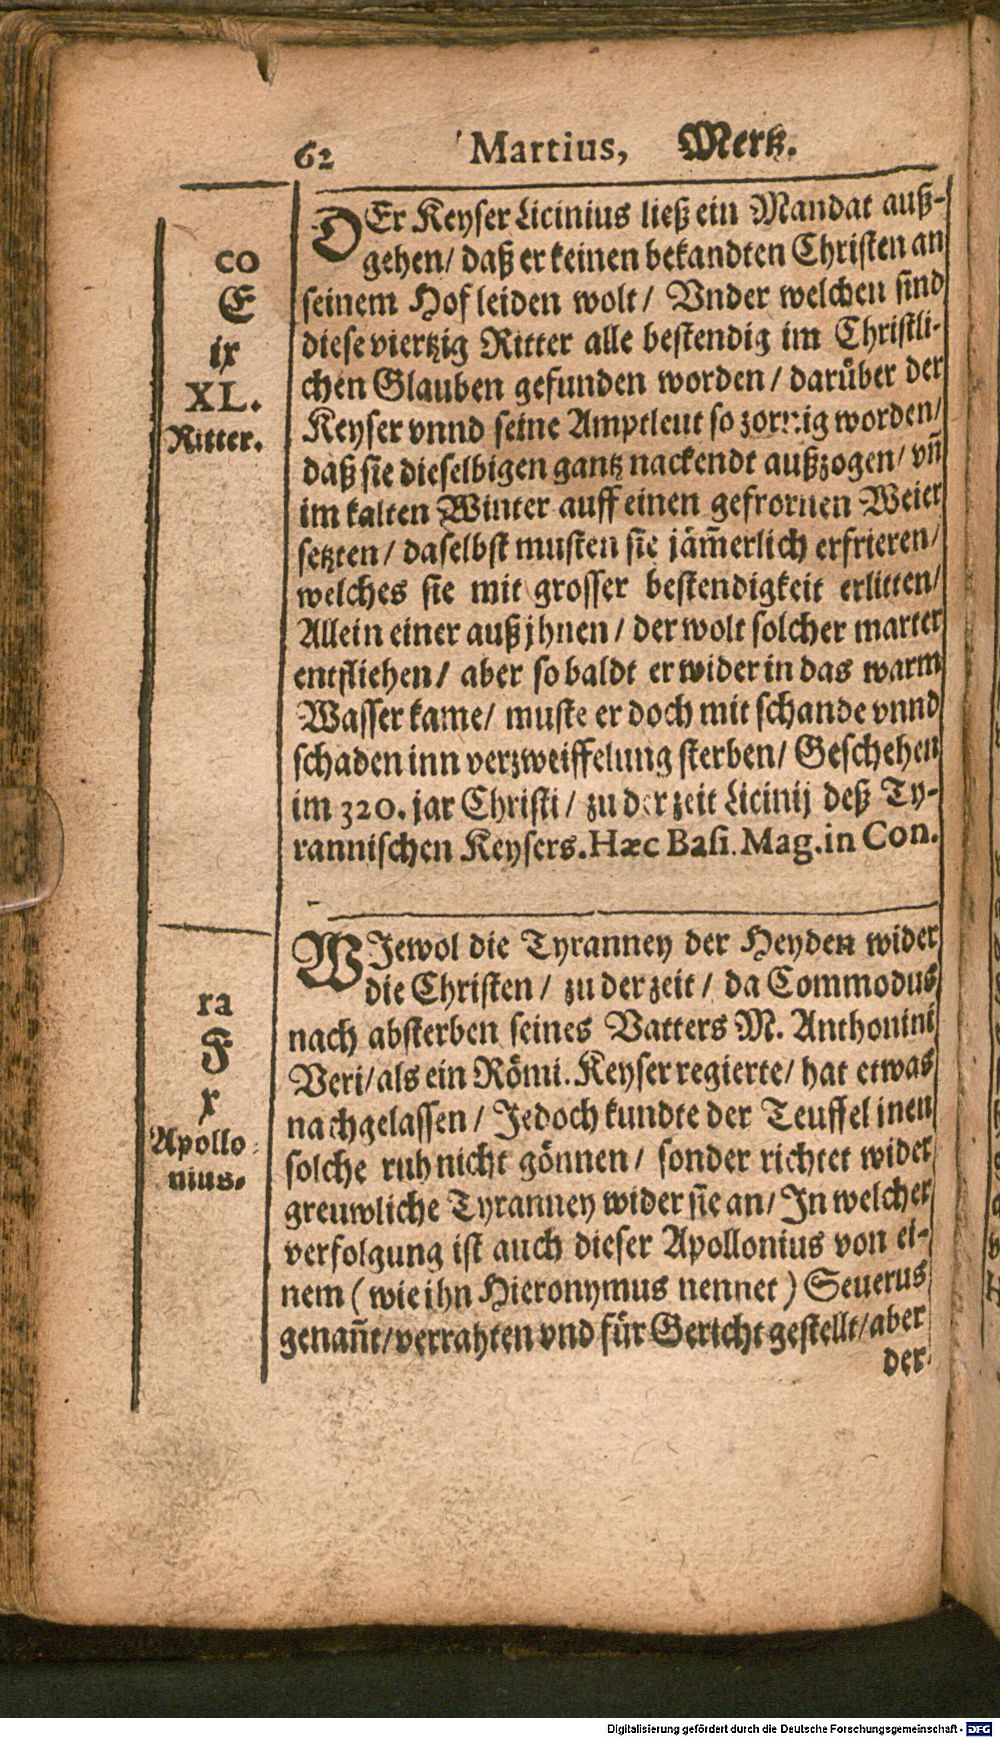 62 Martius, Mertz.
co
E
ix
XL.
Ritter.
DEr Keyser Licinius ließ ein Mandat auß-
gehen/ daß er keinen bekandten Christen an
seinem Hof leiden wolt/ Vnder welchen sind
diese viertzig Ritter alle bestendig im Christli-
chen Glauben gefunden worden/ darüber der
Keyser vnnd seine Amptleut so zornig worden/
daß sie dieselbigen gantz nackendt außzogen/ vñ
im kalten Winter auff einen gefrornen Weier
setzten/ daselbst musten sie jäm̃erlich erfrieren/
welches sie mit grosser bestendigkeit erlitten/
Allein einer auß jhnen/ der wolt solcher marter
entfliehen/ aber so baldt er wider in das warm
Wasser kame/ muste er doch mit schande vnnd
schaden inn verzweiffelung sterben/ Geschehen
im 320. jar Christi/ zu der zeit Licinij deß Ty-
rannischen Keysers. Hæc Basi. Mag. in Con.
ra
F
x
Apollo
nius.
WJewol die Tyranney der Heyden wider
die Christen/ zu der zeit/ da Commodus
nach absterben seines Vatters M. Anthonini
Veri/ als ein Römi. Keyser regierte/ hat etwas
nachgelassen/ Jedoch kundte der Teuffel inen
solche ruh nicht gönnen/ sonder richtet wider
greuwliche Tyranney wider sie an/ Jn welcher
verfolgung ist auch dieser Apollonius von ei-
nem (wie ihn Hieronymus nennet) Seuerus
genañt/ verrahten vnd für Gericht gestellt/ aber
der
Digitalisierung gefördert durch die Deutsche Forschungsgemeinschaft - DFG